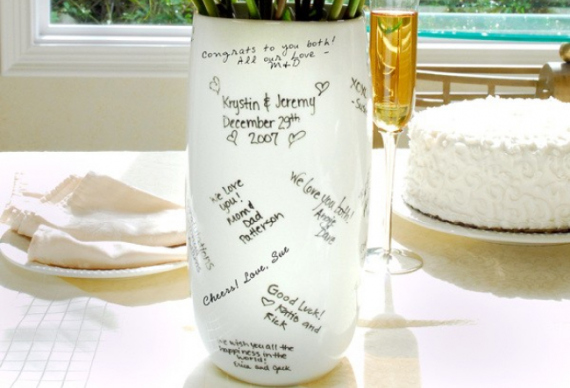 Congrats to you both!
All our love -
M&D
XOXO
Krystin & Jeremy
December 29th
2007
We love
you!
Mom &
Dad
Patterson
We love you both!
Annie
Dave
Cheers! Love, Sue
Good Luck!
Katie and
Rick
We wish you all the
happiness in the
world!
and Jack